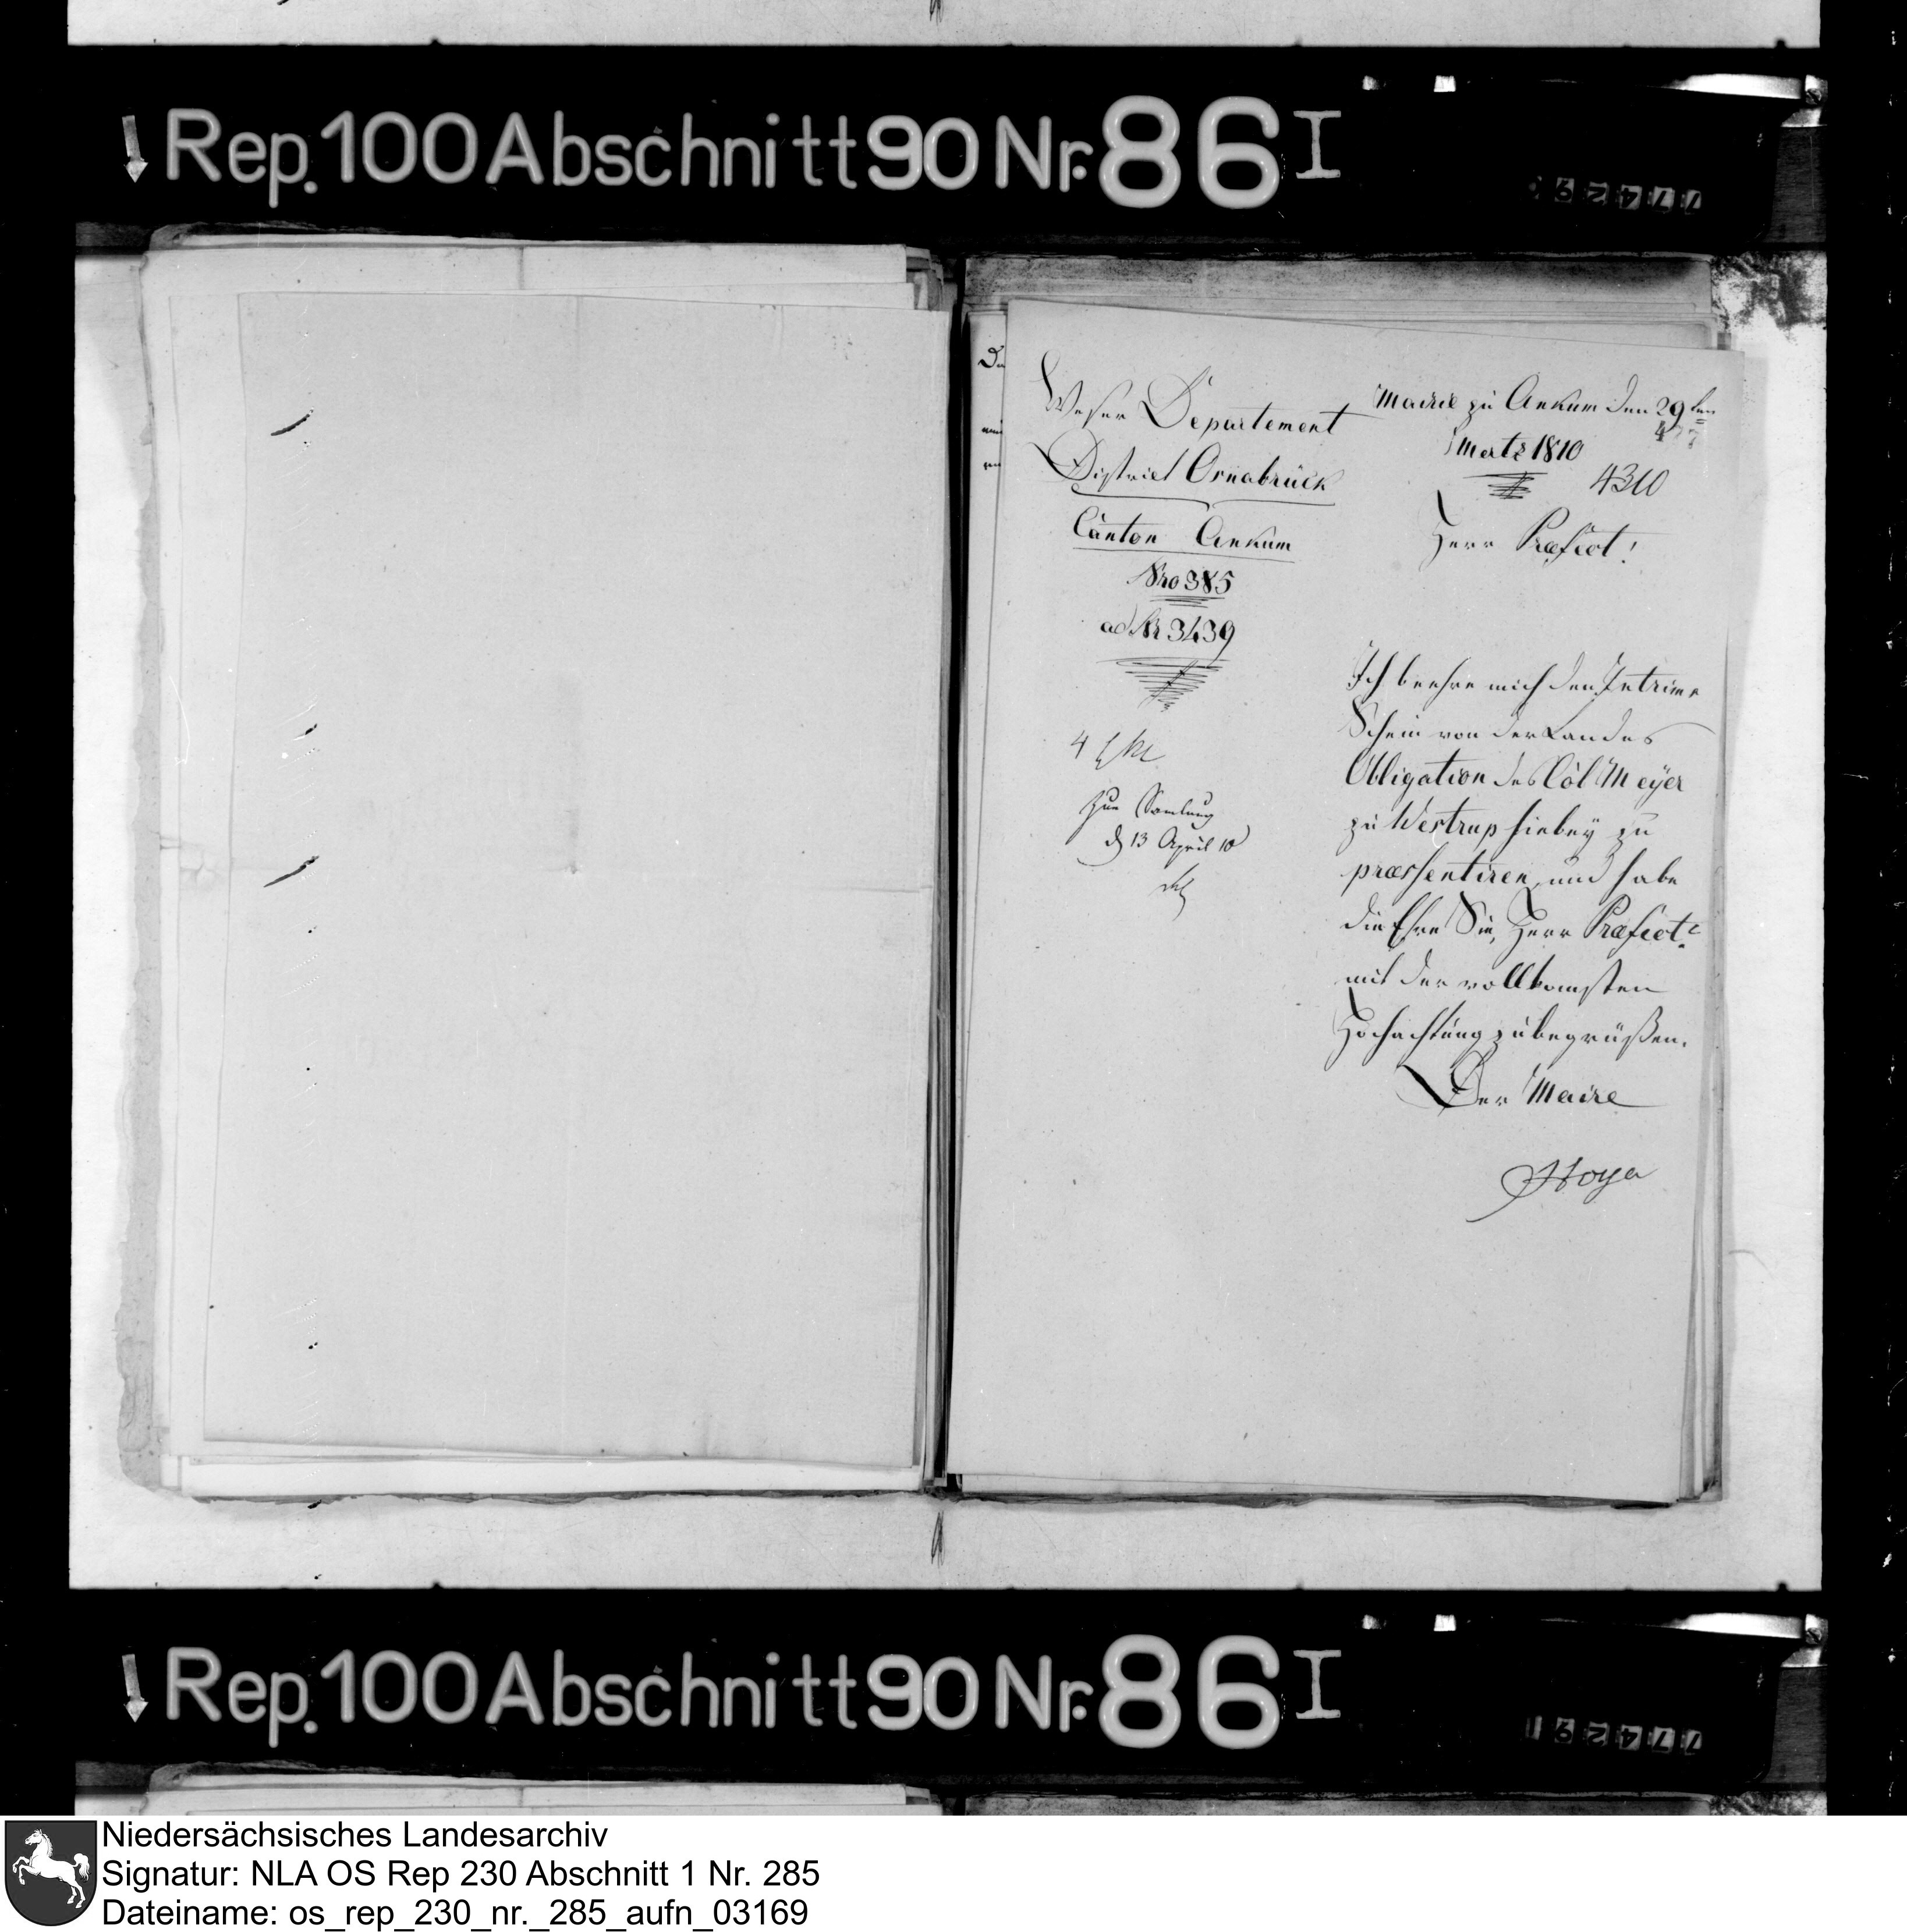 Rep. 100 Abschnitt 90 Nr. 86 I
Weser Departement
District Osnabrück
Canton Ankum
Nro 385
ad Nr 3439
zur Samlung
d 13 April 10
Mairie zu Ankum den 29ten
Mertz 1810
4310
Herr Præfect!
Ich beehre mich den Intrims
Schein von der Landes
Obligation des Col. Meyer
zu Westrup hiebey zu
præsentiren, und habe
die Ehre Sie, Herr Præfect
mit der vollkomsten
Hochachtung zu begrüßen.
Der Maire
Rep. 100 Abschnitt 90 Nr. 86 I
Niedersächsisches Landesarchiv
Signatur: NLA OS Rep 230 Abschnitt 1 Nr. 285
Dateiname: os_rep_230_nr._285_aufn_03169